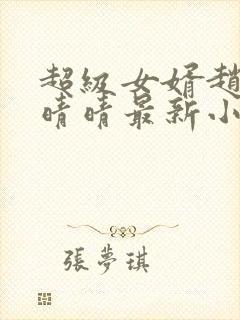 超級女婿趙
晴晴最新小
張夢琪